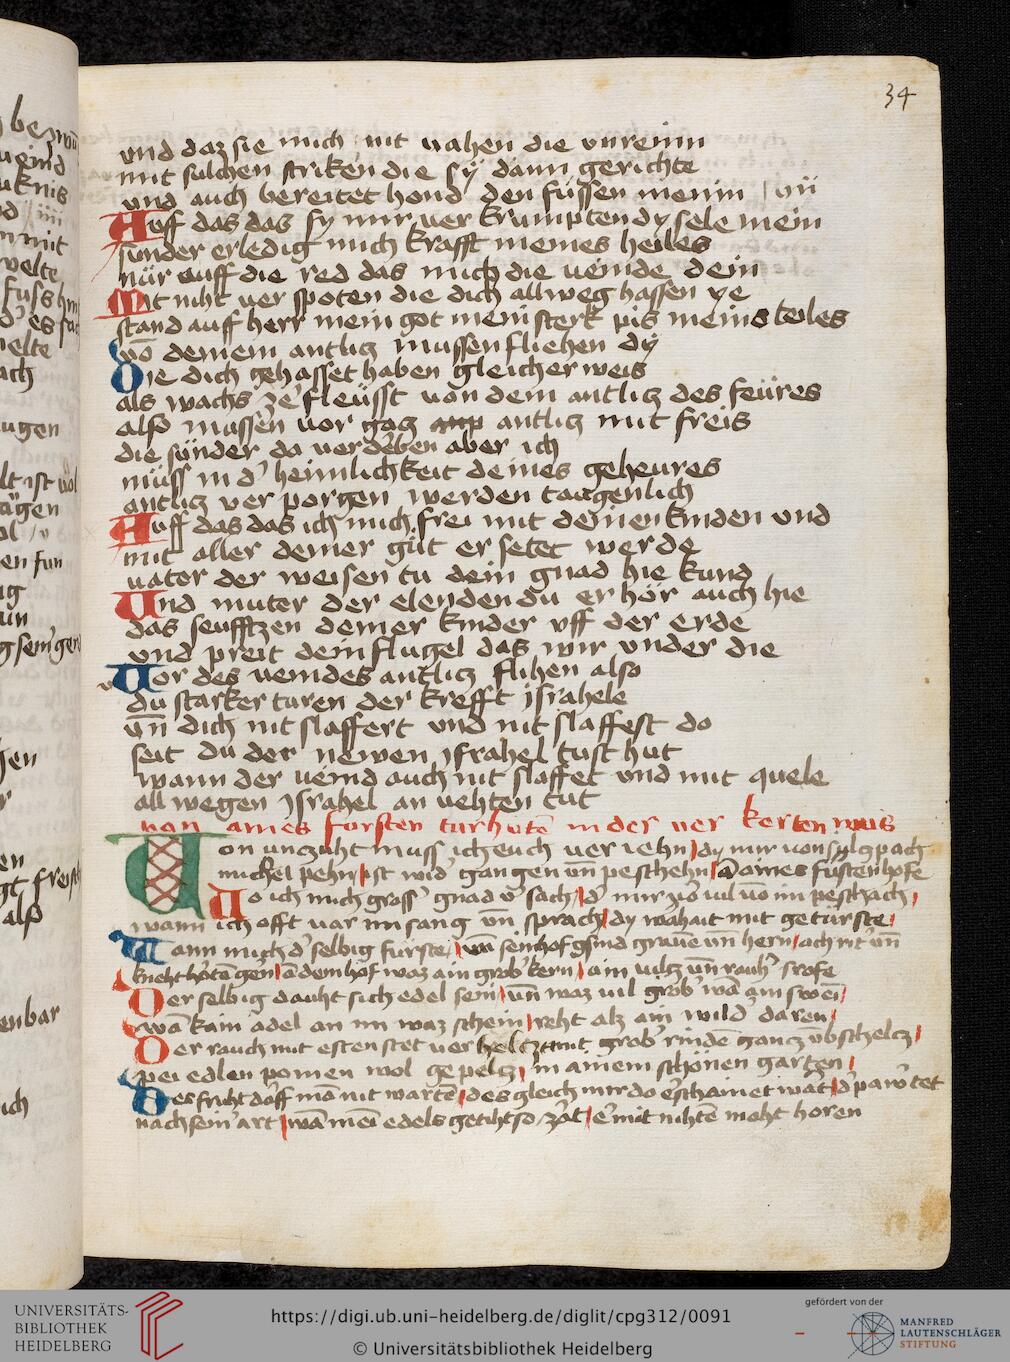 34
vnd daz sie mich nit vahen die vnreinn
mit sulchen striken die sÿ dann gerichte
vnd auch bereitet hond den füssen meinn / vü
Auff das das sy mir ver krumpten dy sele mein
sunder erledig mich krafft meines heiles
nür auff die red das mich die veinde dein
Mit niht ver spoten die dich allweg hassen ye
stand auff herr mein got mein sterk pis meins teiles
vō deinem antlicz mussen fliehen dÿ
Die dich gehasset haben gleicher weis
als wachs ze fleüsst von dem antlicz des feüres
also mussen vor gocz antlicz mit freis
die sünder da verderben aber ich
müss in d' heimlichkeit deines geheures
antlicz ver porgen werden taugenlich
Auff das das ich mich frei mit deinen kinden vnd
mit aller deiner güt er setet werde
vater der weisen tu dein gnad hie kund
Vnd muter der elenden du er hör auch hie
das seufftzen deiner kinder vff der erde
vnd preit dein flugel das wir vnder die
Vor des veindes antlicz flihen also
du starker turen der krefft jsrahele
vn̄ dich nit slaffert vnd nit slaffest do
seit du der newen jsrahel tust hut
wann der veind auch nit slaffet vnd mit quele
all wegen jsrahel an vehten tut
von aines fursten turhutē in der ver kerten weis
Von vnczuht muss ich euch ver iehn / dy mir von sulczpach
michel pehn / ist wid' gangen vn̄ peschehn / ā aines fustenhofe
Do ich mich gross' gnad v' sach / d' mir zvo vil vō im peschach /
wann ich offt var im sang vn̄ sprach / dy wahait mit getürste /
Wann mich d' selbig fürste / vn̄ sein hofgsind grauē vn̄ hern / ach rit' vn̄
kneht hōtā gen / ā dem hof waz ain grob' kern / ain vilcz vn̄ rauh' srofe
Der selbig dauht sich edel sein / vn̄ waz vil grob' wā ain swein /
wā kain adel an im waz schein / reht alz ain wild' daren /
Der rauch mit esten stet ver heltzt mit grob' rindē gancz vbschelcz /
pei edlen pomen wol ge pelcz / in ainem schönen garten /
Des fricht dorff mā nit wartē / des gleich mir do erschainet wār / d' pawr tet
nach sein' art / wā mei edels getiht so zart / er mit nihtē moht horen
UNIVERSITÄTS-
BIBLIOTHEK
HEIDELBERG
https://digi.ub.uni-heidelberg.de/diglit/cpg312/0091
© Universitätsbibliothek Heidelberg
gefördert von der
MANFRED
LAUTENSCHLÄGER
STIFTUNG